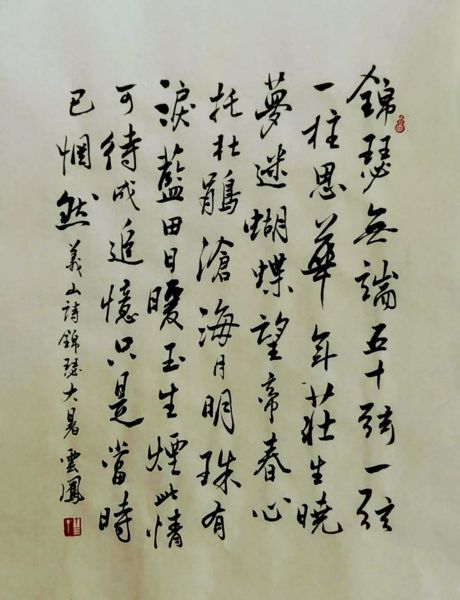 錦瑟無端五十弦一弦
一柱思華年莊生曉
夢迷蝴蝶望帝春心
托杜鵑滄海月明珠有
淚藍田日暖玉生煙此情
可待成追憶只是當時
已惘然
義山詩錦瑟大暑雲鳳